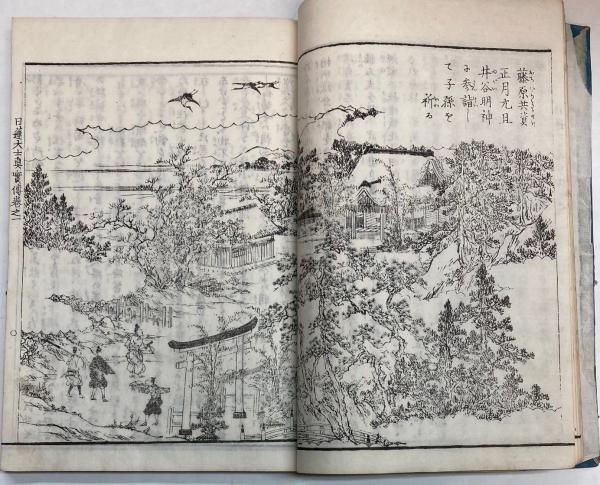 藤原共資
正月元旦
井谷明神
に参詣し
て子孫を
祈る
日蓮大士真実伝巻之一